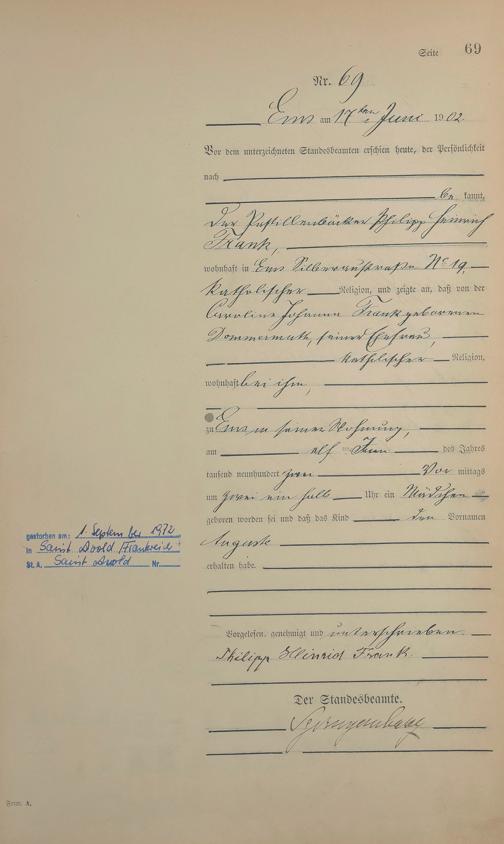 Seite 69
Nr. 69
Ems am 17ten Juni 1902.
Vor dem unterzeichneten Standesbeamten erschien heute, der Persönlichkeit
nach
be kannt,
der Pastillenbäcker Philipp Heinrich
Frank,
wohnhaft in Ems Silberaustraße No 19,
katholischer Religion, und zeigte an, daß von der
Caroline Johanna Frank geborenen
Dommermuth, seiner Ehefrau,
katholischer Religion,
wohnhaft bei ihm,
zu Ems in seiner Wohnung,
am elf Juni des Jahres
tausend neunhundert zwei Vor mittags
um zwei ein halb Uhr ein Mädchen
geboren worden sei und daß das Kind den Vornamen
Auguste
erhalten habe.
gestorben am: 1. September 1972
in Saint Avold/Frankreich
St. A. Saint Avold Nr
Vorgelesen, genehmigt und unterschrieben
Philipp Heinrich Frank.
Der Standesbeamte.
Form. A.